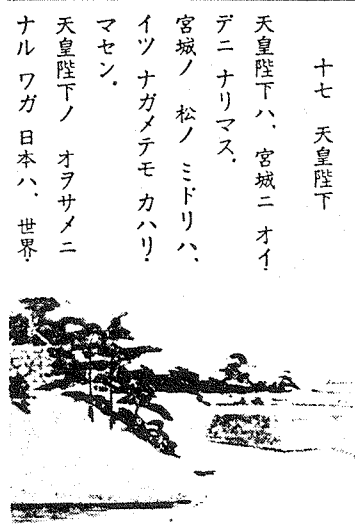 十七 天皇陛下
天皇陛下ハ、宮城ニ オイ
デニ ナリマス。
宮城ノ 松ノ ミドリハ、
イツ ナガメテモ カハリ
マセン。
天皇陛下ノ オヲサメニ
ナル ワガ 日本ハ、世界